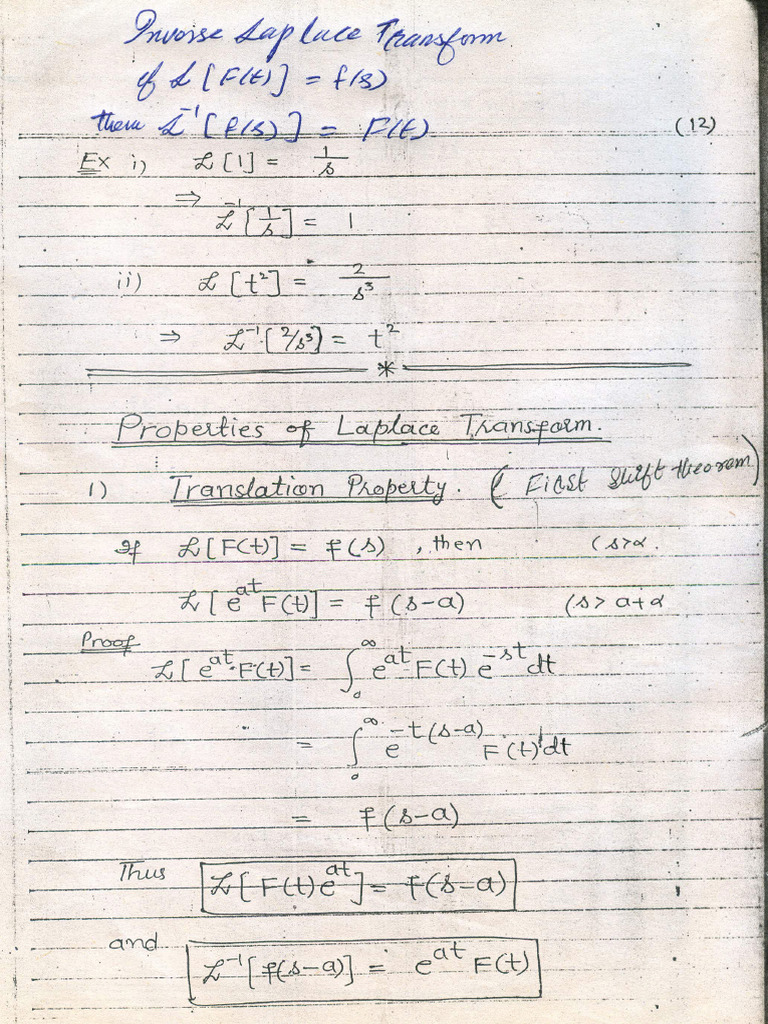 Inverse Laplace Transform
if ℒ[F(t)] = f(s)
then ℒ⁻¹[f(s)] = F(t) (12)
Ex i) ℒ[1] = 1/s
⇒
ℒ⁻¹[1/s] = 1
ii) ℒ[t²] = 2/s³
⇒ ℒ⁻¹[2/s³] = t²
*
Properties of Laplace Transform.
1) Translation Property. (First Shift theorem)
If ℒ[F(t)] = f(s), then (s>α.
ℒ[e^{at}F(t)] = f(s-a) (s > a+α
Proof
ℒ[e^{at}.F(t)] = ∫₀^∞ e^{at} F(t) e^{-st} dt
= ∫₀^∞ e^{-t(s-a)} F(t) dt
= f(s-a)
Thus ℒ[F(t)e^{at}] = f(s-a)
and ℒ⁻¹[f(s-a)] = e^{at} F(t)